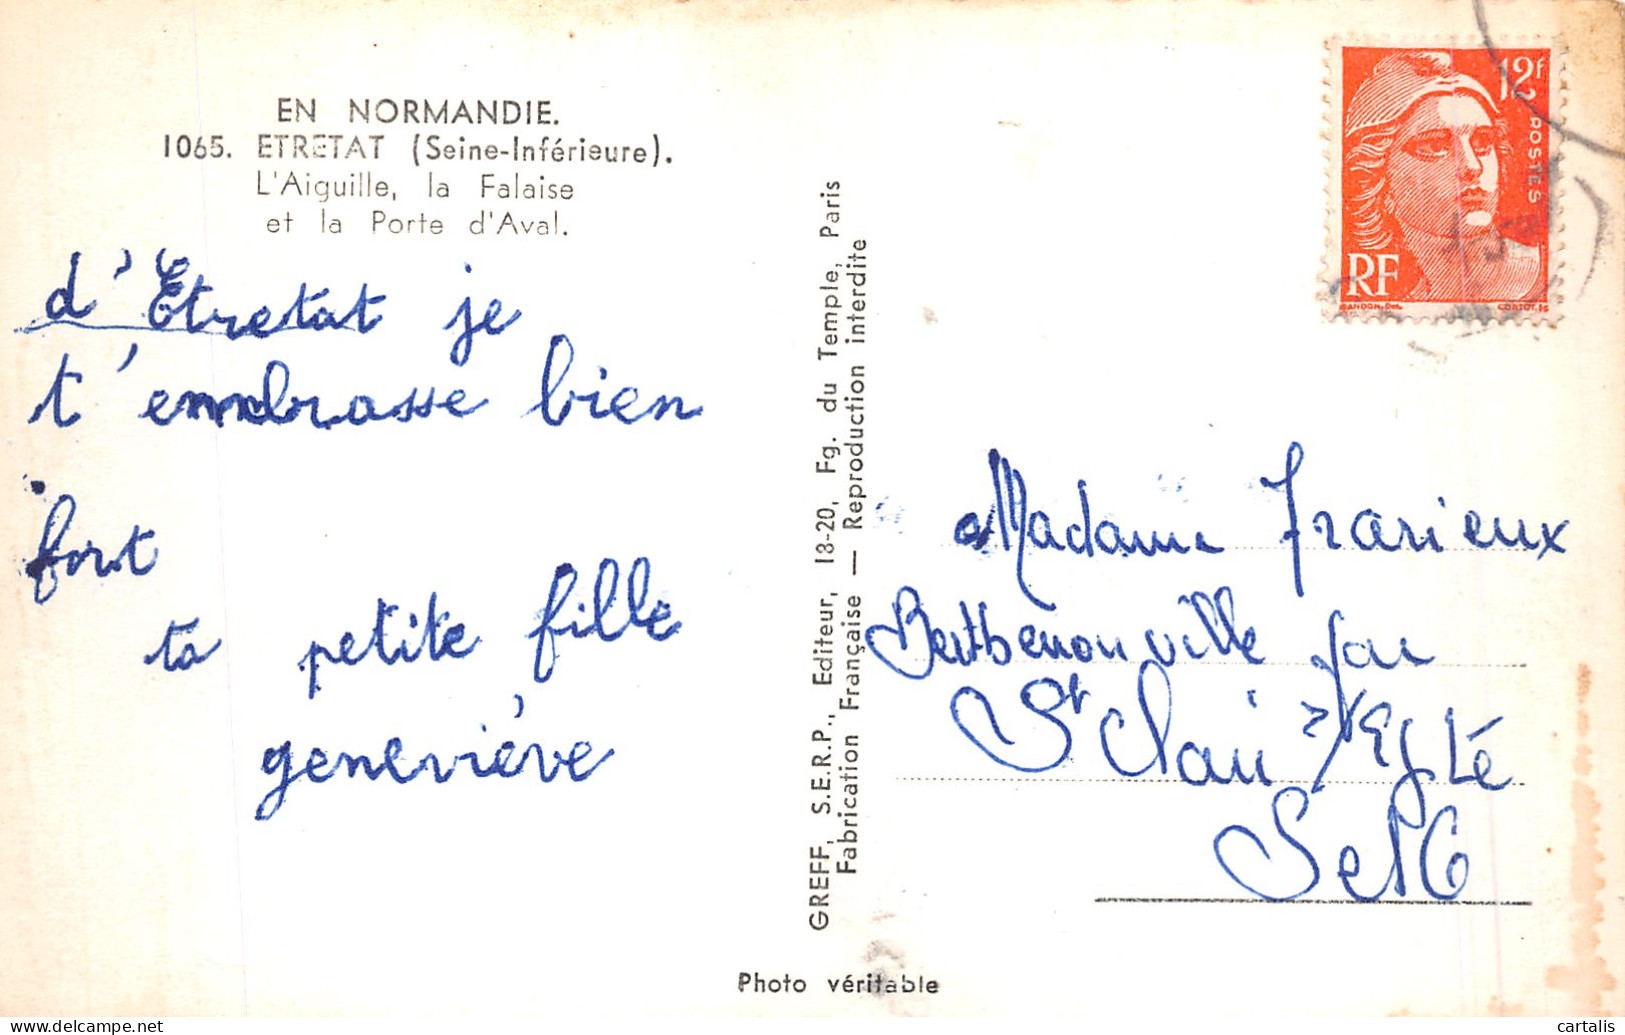 EN NORMANDIE.
1065. ETRETAT (Seine-Inférieure).
L'Aiguille, la Falaise
et la Porte d'Aval.
d'Etretat je
t'embrasse bien
fort
ta petite fille
geneviève
GREFF, S.E.R.P., Editeur, 18-20, Fg. du Temple, Paris
Fabrication Française — Reproduction interdite
Photo véritable
12f
POSTES
RF
GANDON.Del.
Madame
par
St Clair s/ Epte
S et O
cartalis